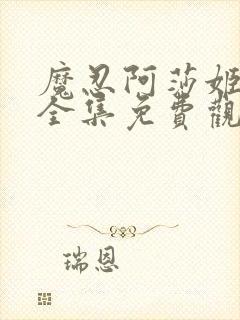 魔忍阿莎姬
全集免費觀
瑞恩